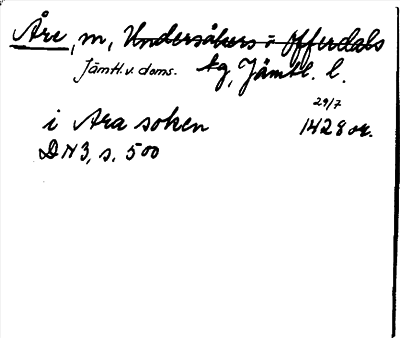 Åre, m, Undersåkers o Offerdals
Jämtl. v. doms. tg, Jämtl. l.
29/7
i Ara soken 1428 or.
DN3, s. 500